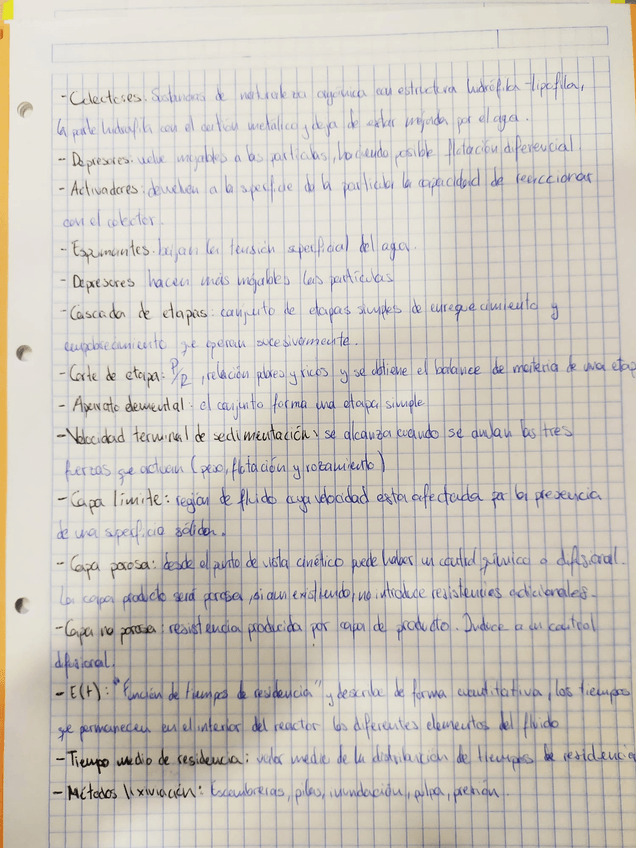 - Colectores: Sustancias de naturaleza orgánica con estructura hidrófila-lipófila,
la parte hidrófila con el catión metálico y deja de estar mojada por el agua.
- Depresores: vuelve mojables a las partículas, haciendo posible flotación diferencial
- Activadores: devuelven a la superficie de la partícula la capacidad de reaccionar
con el colector.
- Espumantes: bajan la tensión superficial del agua.
- Depresores hacen más mojables las partículas
- Cascada de etapas: conjunto de etapas simples de enriquecimiento y
empobrecimiento que operan sucesivamente.
- Corte de etapa: P/R, relación pobres y ricos y se obtiene el balance de materia de una etapa
- Aparato elemental: el conjunto forma una etapa simple
- Velocidad terminal de sedimentación: se alcanza cuando se anulan las tres
fuerzas que actúan (peso, flotación y rozamiento)
- Capa límite: región de fluido cuya velocidad esta afectada por la presencia
de una superficie sólida.
- Capa porosa: desde el punto de vista cinético puede haber un control químico o difusional.
La capa producto será porosa, si aun existiendo, no introduce resistencias adicionales.
- Capa no porosa: resistencia producida por capa de producto. Induce a un control
difusional.
- E(t): "Función de tiempos de residencia" y describe de forma cuantitativa, los tiempos
que permanecen en el interior del reactor los diferentes elementos del fluido
- Tiempo medio de residencia: valor medio de la distribución de tiempos de residencia
- Métodos lixiviación: Escombreras, pilas, inundación, pulpa, presión.